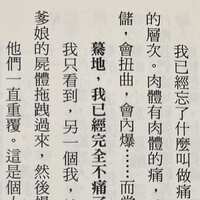 我已經忘了什麼叫做痛
的層次。肉體有肉體的痛，
儲，會扭曲，會內爆……而
驀地，我已經完全不痛了
我只看到，另一個我，
爹娘的屍體拖跩過來，然後
他們一直重覆。這是個